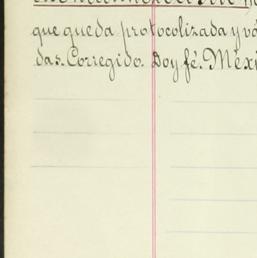 que queda protocolizada y vá
das. Corregido. Doy fé. Méxi